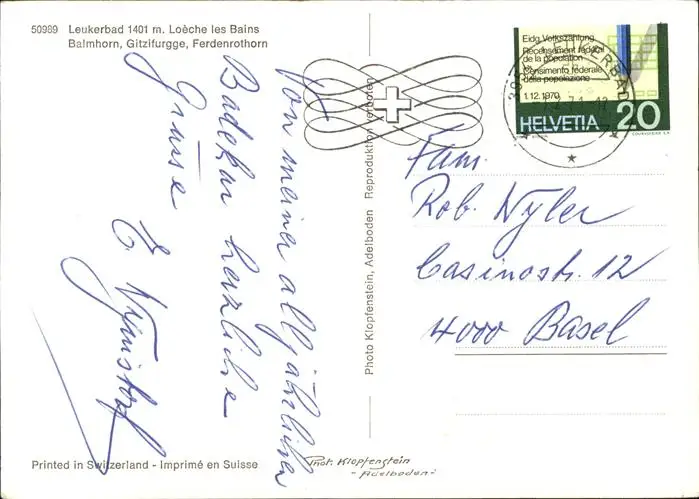 50989 Leukerbad 1401 m. Loèche les Bains
Balmhorn, Gitzifurgge, Ferdenrothorn
Von meiner alljährlichen
Badekur herzliche
Grüsse
Printed in Switzerland - Imprimé en Suisse
Photo Klopfenstein, Adelboden Reproduktion verboten
Phot. Klopfenstein
- Adelboden -
Eidg. Volkszählung
Recensement fédéral
de la population
Censimento federale
della popolazione
1.12.1970
HELVETIA 20
COURVOISIER S.A.
Fam.
Rob. Wyler
Casinostr. 12
4000 Basel